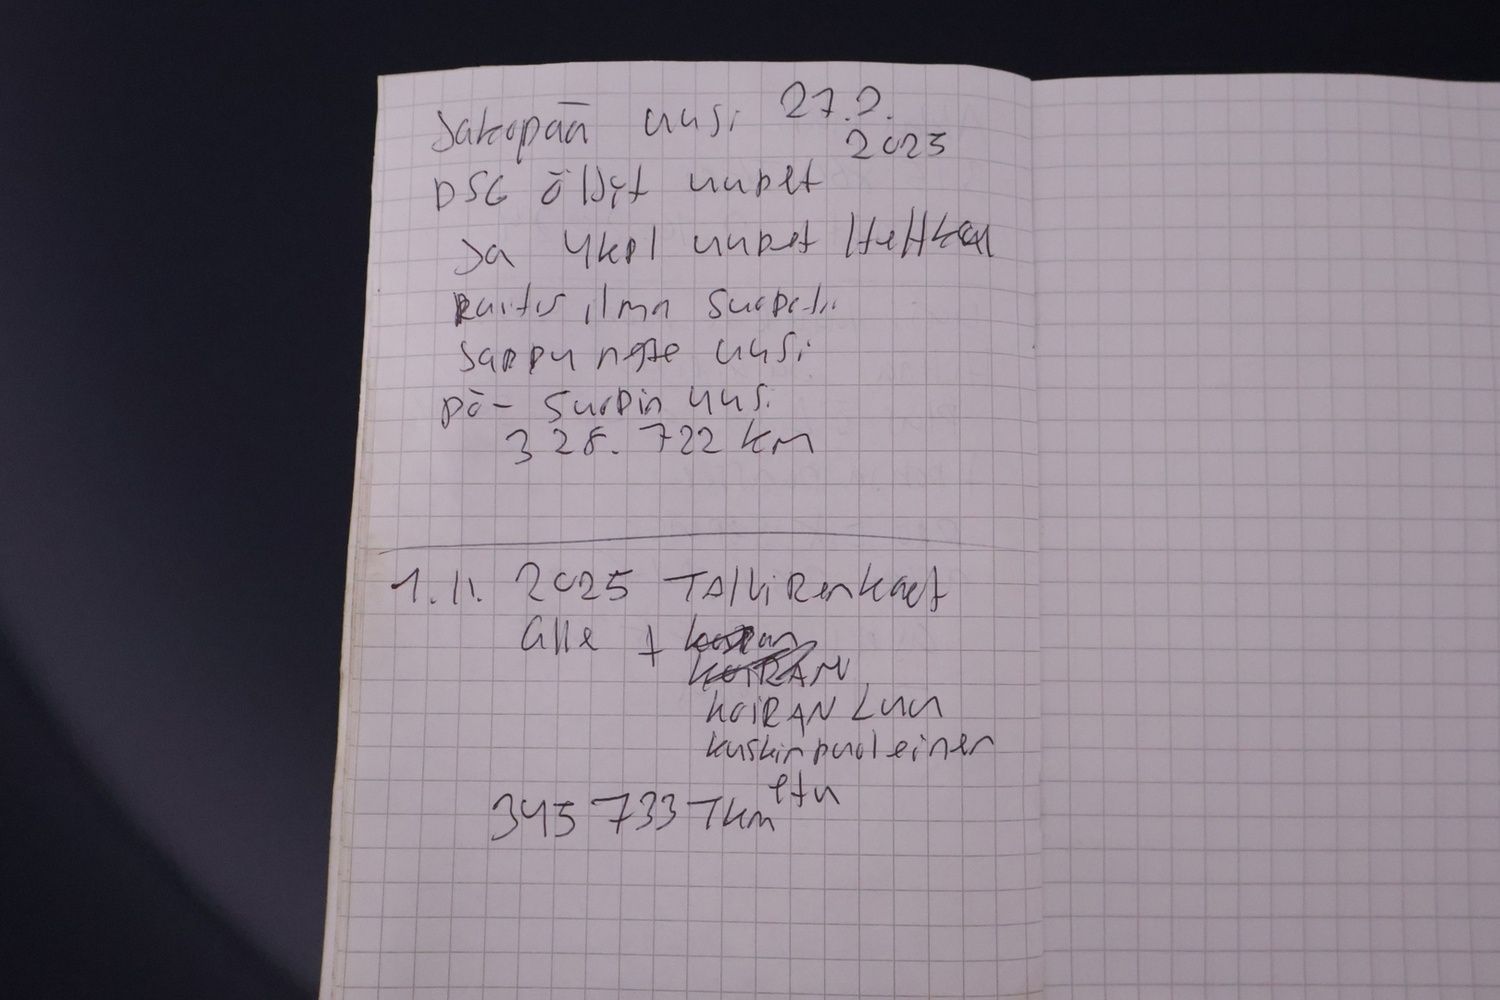 Jakopää uusi 27.2.
2025
DSG öljyt uudet
Ja ykpl uudet
Raitis ilma Suodatin
Jarru neste uusi
pö- Suodin uusi
328.722 km
1.11. 2025 TAlviRenkaat
alle +
KOIRAN
KOIRAN Luu
kuskin puoleinen
etu
345 733 Tkm